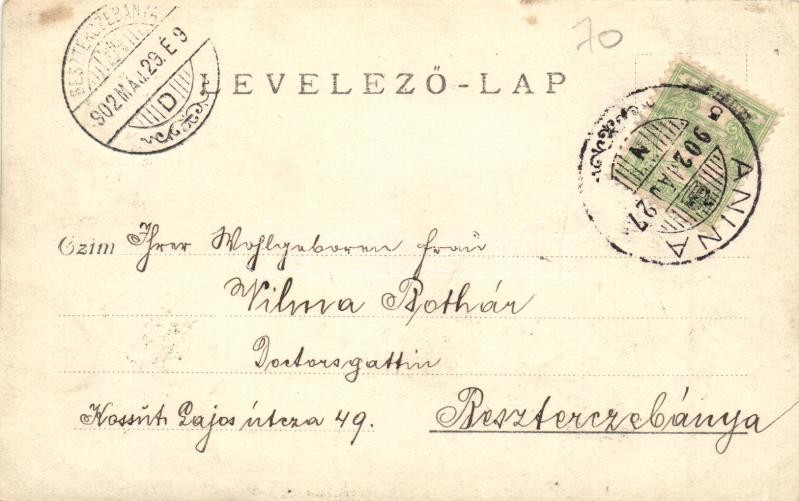 70
BESZTERCZEBÁNYA
902 MÁJ. 29. É 9
D
LEVELEZŐ-LAP
ANINA
902 MÁJ 27.
N
5
Czim Ihrer Wohlgeboren Frau
Wilma Bothár
Doctorsgattin
Kossut Lajos útcza 49. Beszterczebánya